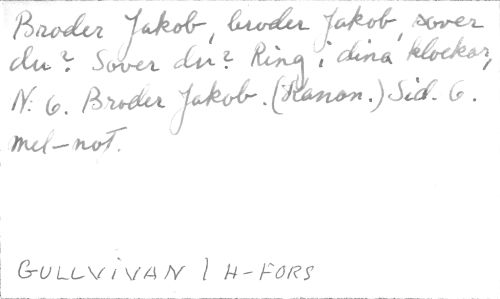 Broder Jakob, broder Jakob, sover
du? Sover du? Ring i dina klockor,
N: 6. Broder Jakob. (Kanon.) Sid. 6.
mel-not.
GULLVIVAN / H-FORS